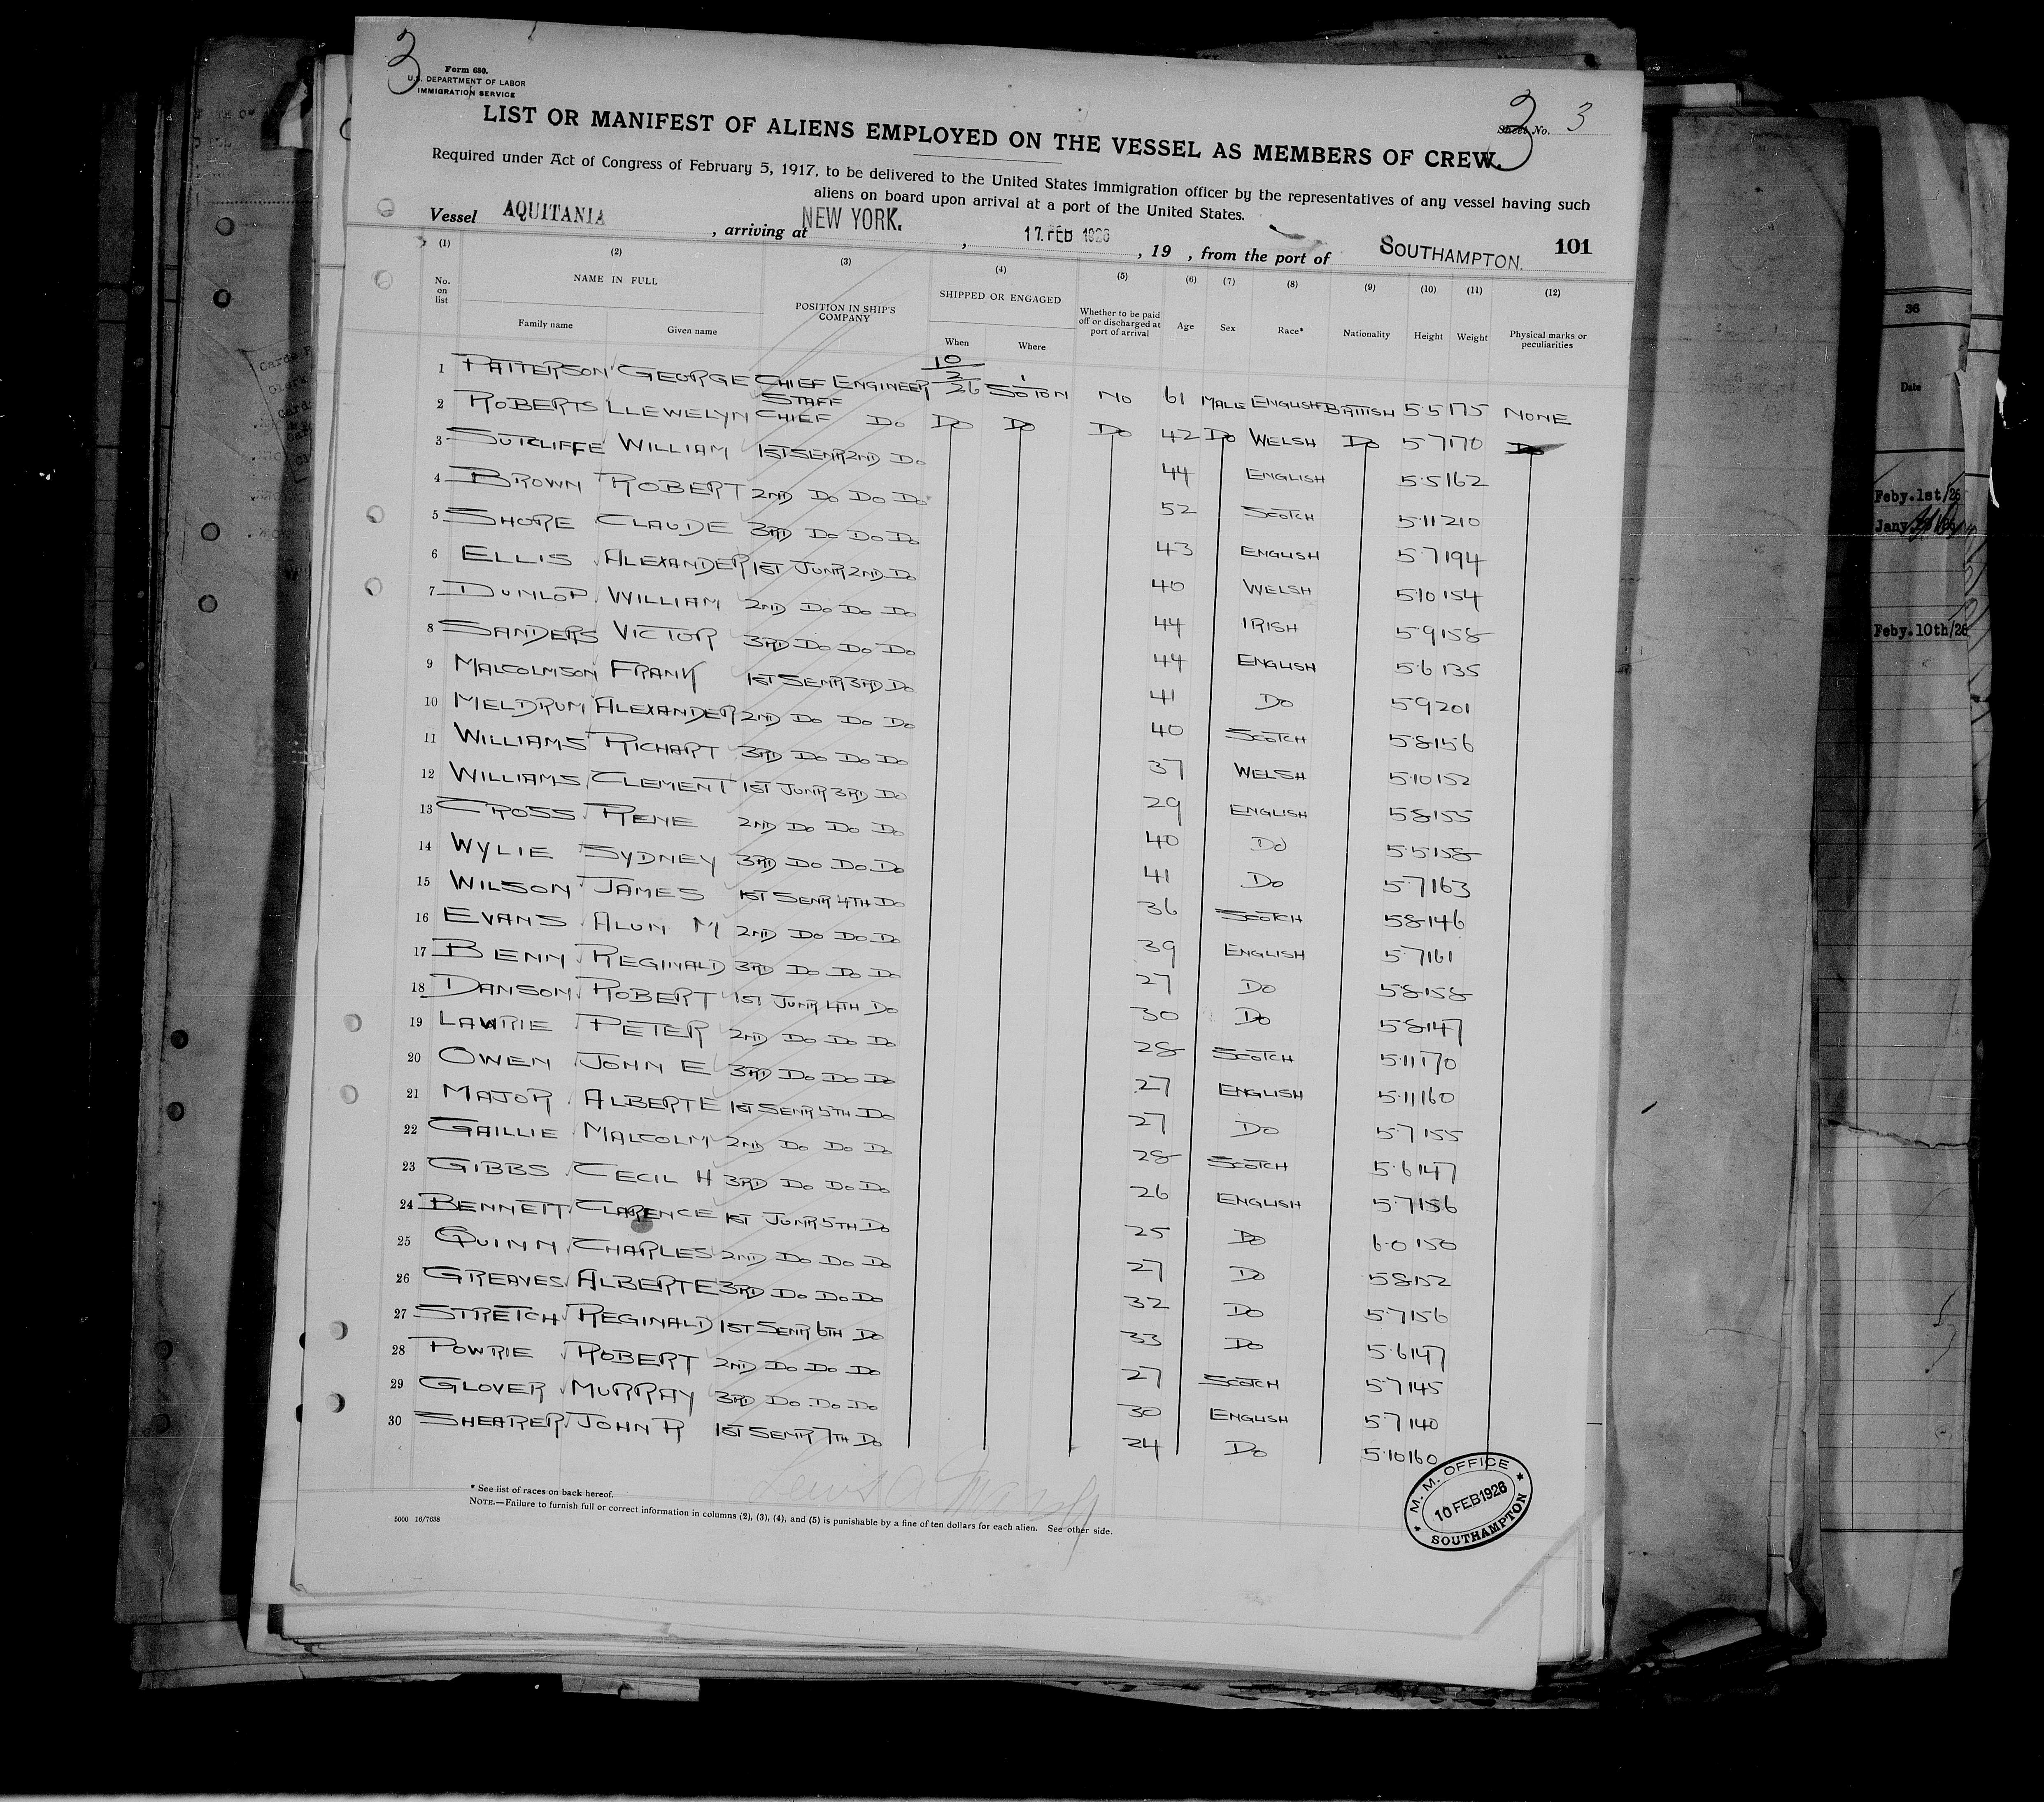 3
Form 680.
U.S. DEPARTMENT OF LABOR
IMMIGRATION SERVICE
3
Sheet No. 3
LIST OR MANIFEST OF ALIENS EMPLOYED ON THE VESSEL AS MEMBERS OF CREW.
Required under Act of Congress of February 5, 1917, to be delivered to the United States immigration officer by the representatives of any vessel having such
aliens on board upon arrival at a port of the United States.
Vessel AQUITANIA, arriving at NEW YORK., 17. FEB 1926, 19 , from the port of SOUTHAMPTON. 101
(1) (2) (3) (4) (5) (6) (7) (8) (9) (10) (11) (12)
No. on list NAME IN FULL POSITION IN SHIP'S COMPANY SHIPPED OR ENGAGED Whether to be paid off or discharged at port of arrival Age Sex Race* Nationality Height Weight Physical marks or peculiarities
Family name Given name When Where
1 PATTERSON GEORGE CHIEF ENGINEER 10/2/26 SOTON NO 61 MALE ENGLISH BRITISH 5.5 175 NONE
2 ROBERTS LLEWELYN STAFF CHIEF DO DO DO DO 42 DO WELSH DO 5.7 170 DO
3 SUTCLIFFE WILLIAM 1ST SENR 2ND DO 44 ENGLISH 5.5 162
4 BROWN ROBERT 2ND DO DO DO 52 SCOTCH 5.11 210
5 SHORE CLAUDE 3RD DO DO DO 43 ENGLISH 5.7 194
6 ELLIS ALEXANDER 1ST JUNR 2ND DO 40 WELSH 5.10 154
7 DUNLOP WILLIAM 2ND DO DO DO 44 IRISH 5.9 158
8 SANDERS VICTOR 3RD DO DO DO 44 ENGLISH 5.6 135
9 MALCOLMSON FRANK 1ST SENR 3RD DO 41 DO 5.9 201
10 MELDRUM ALEXANDER 2ND DO DO DO 40 SCOTCH 5.8 156
11 WILLIAMS RICHART 3RD DO DO DO 37 WELSH 5.10 152
12 WILLIAMS CLEMENT 1ST JUNR 3RD DO 29 ENGLISH 5.8 155
13 CROSS RENE 2ND DO DO DO 40 DO 5.5 158
14 WYLIE SYDNEY 3RD DO DO DO 41 DO 5.7 163
15 WILSON JAMES 1ST SENR 4TH DO 36 SCOTCH 5.8 146
16 EVANS ALUN M 2ND DO DO DO 39 ENGLISH 5.7 161
17 BENN REGINALD 3RD DO DO DO 27 DO 5.8 158
18 DANSON ROBERT 1ST JUNR 4TH DO 30 DO 5.8 147
19 LAWRIE PETER 2ND DO DO DO 28 SCOTCH 5.11 170
20 OWEN JOHN E 3RD DO DO DO 27 ENGLISH 5.11 160
21 MAJOR ALBERT E 1ST SENR 5TH DO 27 DO 5.7 155
22 GAILLIE MALCOLM 2ND DO DO DO 28 SCOTCH 5.6 147
23 GIBBS CECIL H 3RD DO DO DO 26 ENGLISH 5.7 156
24 BENNETT CLARENCE 1ST JUNR 5TH DO 25 DO 6.0 150
25 QUINN CHARLES 2ND DO DO DO 27 DO 5.8 152
26 GREAVES ALBERT E 3RD DO DO DO 32 DO 5.7 156
27 STRETCH REGINALD 1ST SENR 6TH DO 33 DO 5.6 147
28 POWRIE ROBERT 2ND DO DO DO 27 SCOTCH 5.7 145
29 GLOVER MURRAY 3RD DO DO DO 30 ENGLISH 5.7 140
30 SHEARER JOHN R 1ST SENR 7TH DO 24 DO 5.10 160
* See list of races on back hereof.
NOTE.—Failure to furnish full or correct information in columns (2), (3), (4), and (5) is punishable by a fine of ten dollars for each alien. See other side.
5000 16/7638
M. M. OFFICE
10 FEB 1926
SOUTHAMPTON
36
Date
Feby. 1st/26
Jany.
Feby. 10th/26